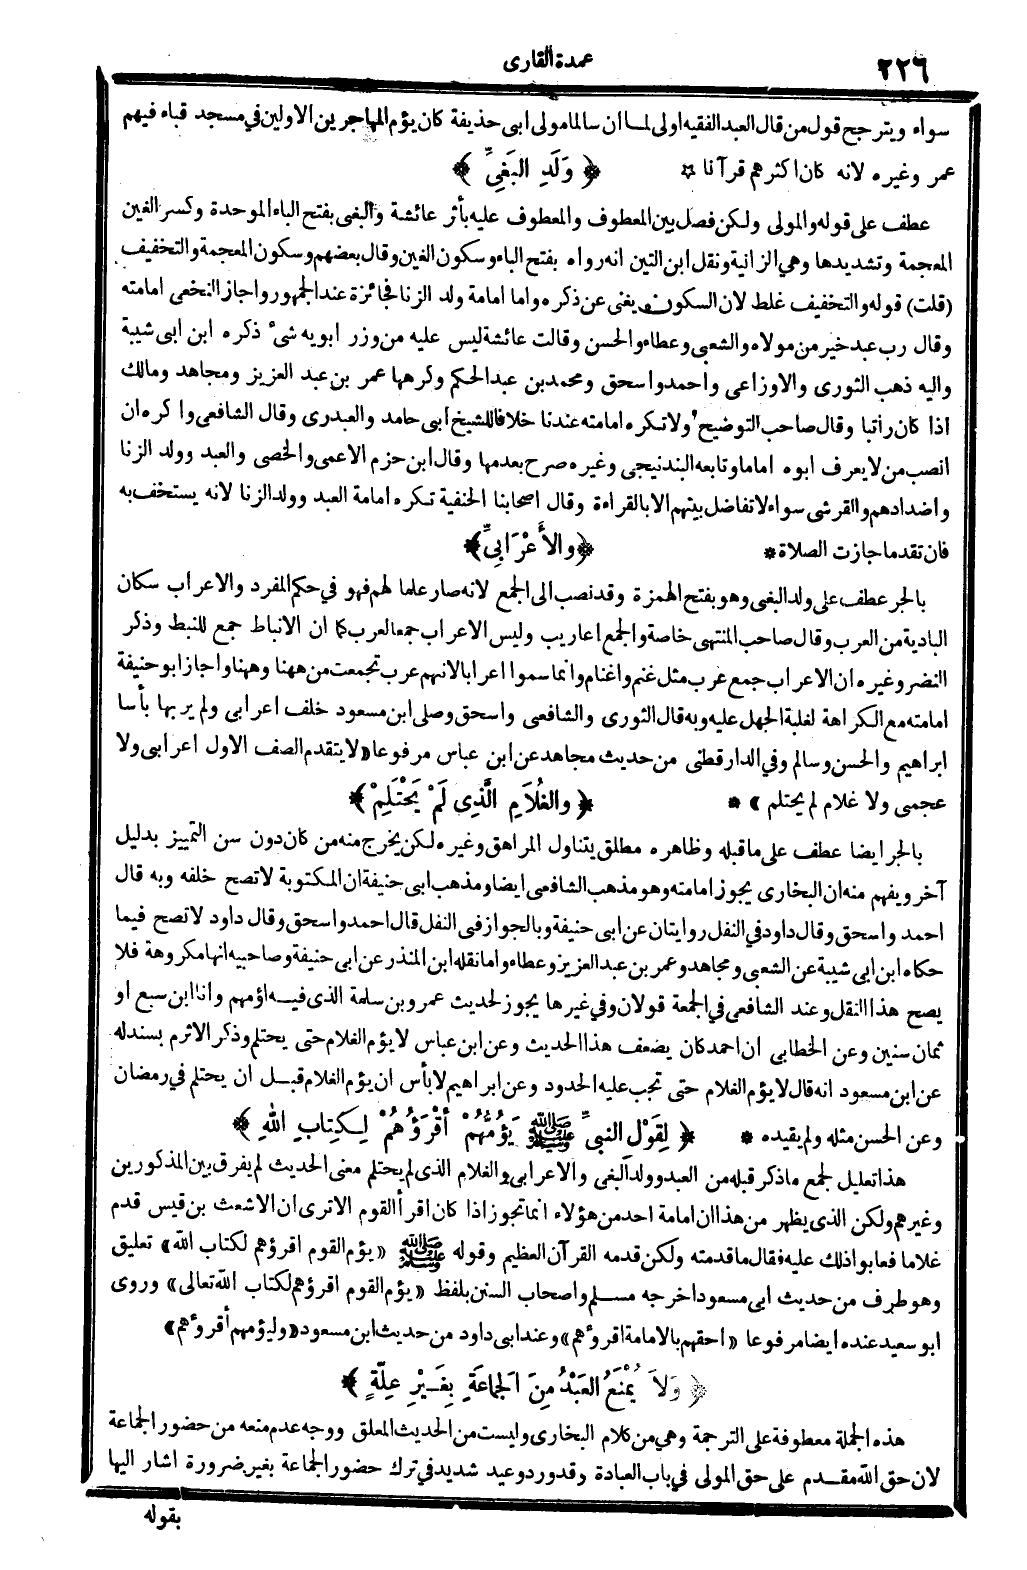 ٢٢٦
عمدة القارى
سواء ويترجح قول من قال العبد الفقيه اولى لما ان سالما مولى ابى حذيفة كان يؤم المهاجرين الاولين في مسجد قباء فيهم
عمر وغيره لانه كان اكثرهم قرآنا ☆ ﴿ وَلَدِ البَغِىِّ ﴾
عطف على قوله والمولى ولكن فصل بين المعطوف والمعطوف عليه بأثر عائشة والبغى بفتح الباء الموحدة وكسر الغين
المعجمة وتشديدها وهي الزانية ونقل ابن التين انه رواه بفتح الباء وسكون الغين وقال بعضهم وسكون المعجمة والتخفيف
(قلت) قوله والتخفيف غلط لان السكون يغنى عن ذكره واما امامة ولد الزنا فجائزة عند الجمهور واجاز النخعى امامته
وقال رب عبد خير من مولاه والشعبى وعطاء والحسن وقالت عائشة ليس عليه من وزر ابويه شئ ذكره ابن ابى شيبة
واليه ذهب الثورى والاوزاعى واحمد واسحق ومحمد بن عبد الحكم وكرهها عمر بن عبد العزيز ومجاهد ومالك
اذا كان راتبا وقال صاحب التوضيح ولا تكره امامته عندنا خلافا للشيخ ابى حامد والعبدرى وقال الشافعى واكره ان
انصب من لا يعرف ابوه اماما وتابعه البندنيجى وغيره صرح بعدمها وقال ابن حزم الاعمى والخصى والعبد وولد الزنا
واضدادهم والقرشى سواء لا تفاضل بينهم الا بالقراءة وقال اصحابنا الحنفية تكره امامة العبد وولد الزنا لانه يستخف به
فان تقدما جازت الصلاة * ﴿ والأَعْرَابِىِّ ﴾
بالجر عطف على ولد البغى وهو بفتح الهمزة وقد نصب الى الجمع لانه صار علما لهم فهو في حكم المفرد والاعراب سكان
البادية من العرب وقال صاحب المنتهى خاصة والجمع اعاريب وليس الاعراب جمعا لعرب كما ان الانباط جمع للنبط وذكر
النضر وغيره ان الاعراب جمع عرب مثل غنم واغنام وانما سموا اعرابا لانهم عرب تجمعت من ههنا وههنا واجاز ابو حنيفة
امامته مع الكراهة لغلبة الجهل عليه وبه قال الثورى والشافعى واسحق وصلى ابن مسعود خلف اعرابى ولم ير بها بأسا
ابراهيم والحسن وسالم وفي الدارقطنى من حديث مجاهد عن ابن عباس مرفوعا «لا يتقدم الصف الاول اعرابى ولا
عجمى ولا غلام لم يحتلم» * ﴿ والغُلاَمِ الَّذِى لَمْ يَحْتَلِمْ ﴾
بالجر ايضا عطف على ما قبله وظاهره مطلق يتناول المراهق وغيره لكن يخرج منه من كان دون سن التمييز بدليل
آخر ويفهم منه ان البخارى يجوز امامته وهو مذهب الشافعى ايضا ومذهب ابى حنيفة ان المكتوبة لا تصح خلفه وبه قال
احمد واسحق وقال داود في النفل روايتان عن ابى حنيفة وبالجواز فى النفل قال احمد واسحق وقال داود لا تصح فيما
حكاه ابن ابى شيبة عن الشعبى ومجاهد وعمر بن عبد العزيز وعطاء واما نقله ابن المنذر عن ابى حنيفة وصاحبيه انها مكروهة فلا
يصح هذا النقل وعند الشافعى في الجمعة قولان وفي غيرها يجوز لحديث عمرو بن سلمة الذى فيه اؤمهم وانا ابن سبع او
ثمان سنين وعن الخطابى ان احمد كان يضعف هذا الحديث وعن ابن عباس لا يؤم الغلام حتى يحتلم وذكر الاثرم بسند له
عن ابن مسعود انه قال لا يؤم الغلام حتى تجب عليه الحدود وعن ابراهيم لا بأس ان يؤم الغلام قبل ان يحتلم في رمضان
وعن الحسن مثله ولم يقيده * ﴿ لِقَوْلِ النبىِّ ﷺ يَؤُمُّهُمْ أَقْرَؤُهُمْ لِكِتابِ اللهِ ﴾
هذا تعليل لجمع ما ذكر قبله من العبد وولد البغى والاعرابى والغلام الذى لم يحتلم معنى الحديث لم يفرق بين المذكورين
وغيرهم ولكن الذى يظهر من هذا ان امامة احد من هؤلاء انما تجوز اذا كان اقرأ القوم الا ترى ان الاشعث بن قيس قدم
غلاما فعابوا ذلك عليه فقال ما قدمته ولكن قدمه القرآن العظيم وقوله ﷺ «يؤم القوم اقرؤهم لكتاب الله» تعليق
وهو طرف من حديث ابى مسعود اخرجه مسلم واصحاب السنن بلفظ «يؤم القوم اقرؤهم لكتاب الله تعالى» وروى
ابو سعيد عنده ايضا مرفوعا «احقهم بالامامة اقرؤهم» وعند ابى داود من حديث ابن مسعود «وليؤمهم أقرؤهم»
﴿ وَلاَ يُمْنَعُ العَبْدُ مِنَ الجَمَاعَةِ بِغَيْرِ عِلّةٍ ﴾
هذه الجملة معطوفة على الترجمة وهي من كلام البخارى وليست من الحديث المعلق ووجه عدم منعه من حضور الجماعة
لان حق الله مقدم على حق المولى في باب العبادة وقد ورد وعيد شديد في ترك حضور الجماعة بغير ضرورة اشار اليها
بقوله